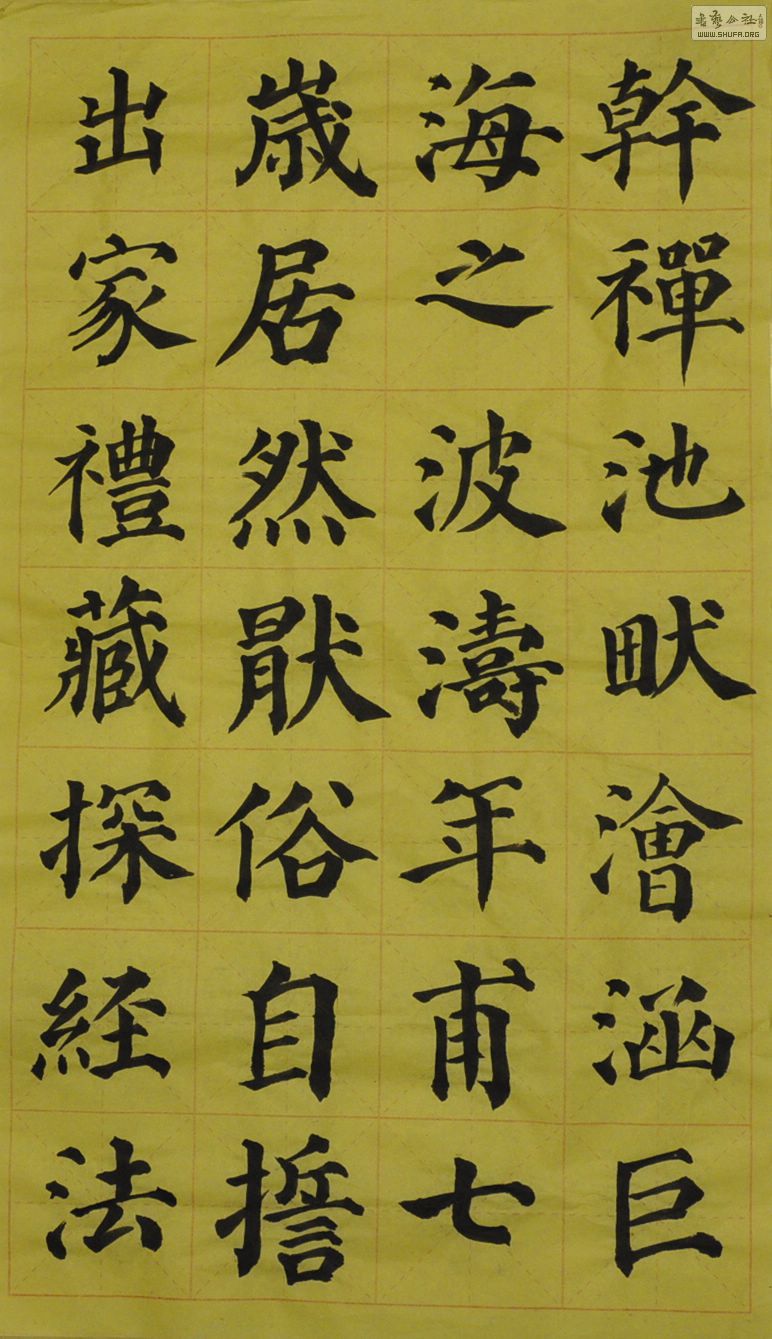 幹禪池畎澮涵巨
海之波濤年甫七
歲居然猒俗自誓
出家禮藏探経法
書藝公社
WWW.SHUFA.ORG